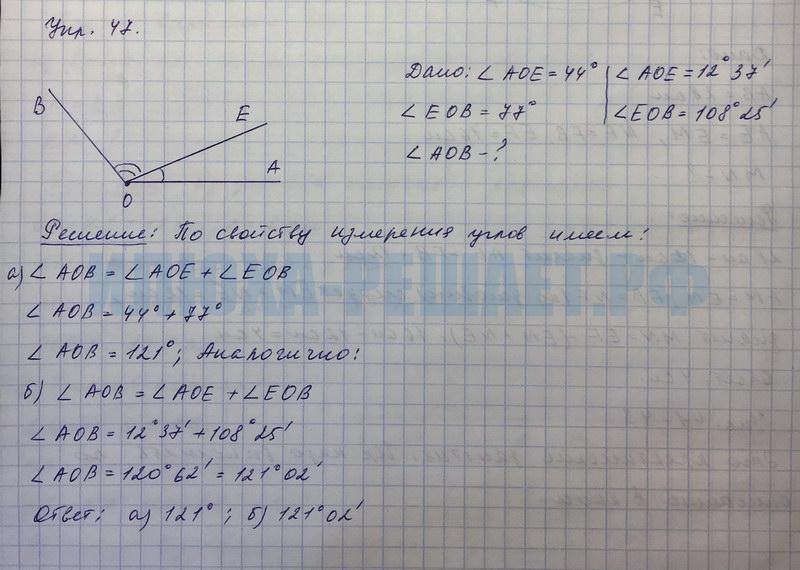 Упр. 47.
B
E
A
O
Дано: ∠ AOE = 44° | ∠ AOE = 12° 37′
∠ EOB = 77° | ∠ EOB = 108° 25′
∠ AOB - ?
Решение: По свойству измерения углов имеем:
а) ∠ AOB = ∠ AOE + ∠ EOB
∠ AOB = 44° + 77°
∠ AOB = 121°; Аналогично:
б) ∠ AOB = ∠ AOE + ∠ EOB
∠ AOB = 12° 37′ + 108° 25′
∠ AOB = 120° 62′ = 121° 02′
Ответ: а) 121° ; б) 121° 02′